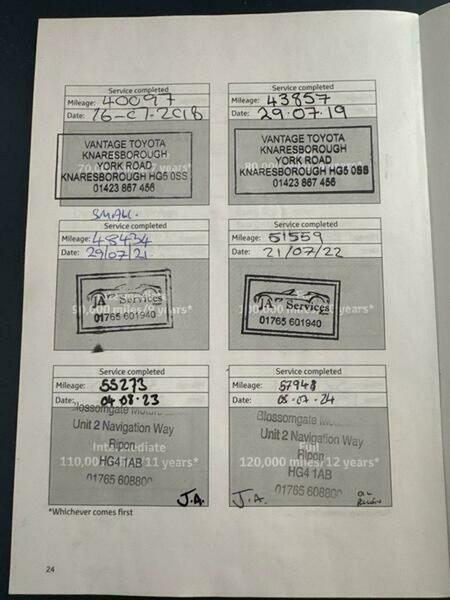 Service completed
Mileage: 40097
Date: 16-07-2018
VANTAGE TOYOTA
KNARESBOROUGH
YORK ROAD
KNARESBOROUGH HG5 0SS
01423 867 456
Service completed
Mileage: 43857
Date: 29.07.19
VANTAGE TOYOTA
KNARESBOROUGH
YORK ROAD
KNARESBOROUGH HG5 0SS
01423 867 456
SMALL
Service completed
Mileage: 48434
Date: 29/07/21
JA Services
90,000 miles/9 years*
01765 601940
Service completed
Mileage: 51559
Date: 21/07/22
JA Services
01765 601940
Service completed
Mileage: 55273
Date: 04.08.23
Blossomgate Motors
Unit 2 Navigation Way
Intermediate
Ripon
110,000 miles/11 years*
HG4 1AB
01765 608800
J.A.
Service completed
Mileage: 57948
Date: 05.07.24
Blossomgate
Unit 2 Navigation Way
Full
Ripon
120,000 miles/12 years*
HG4 1AB
01765 608800
J.A.
OIL
*Whichever comes first
24